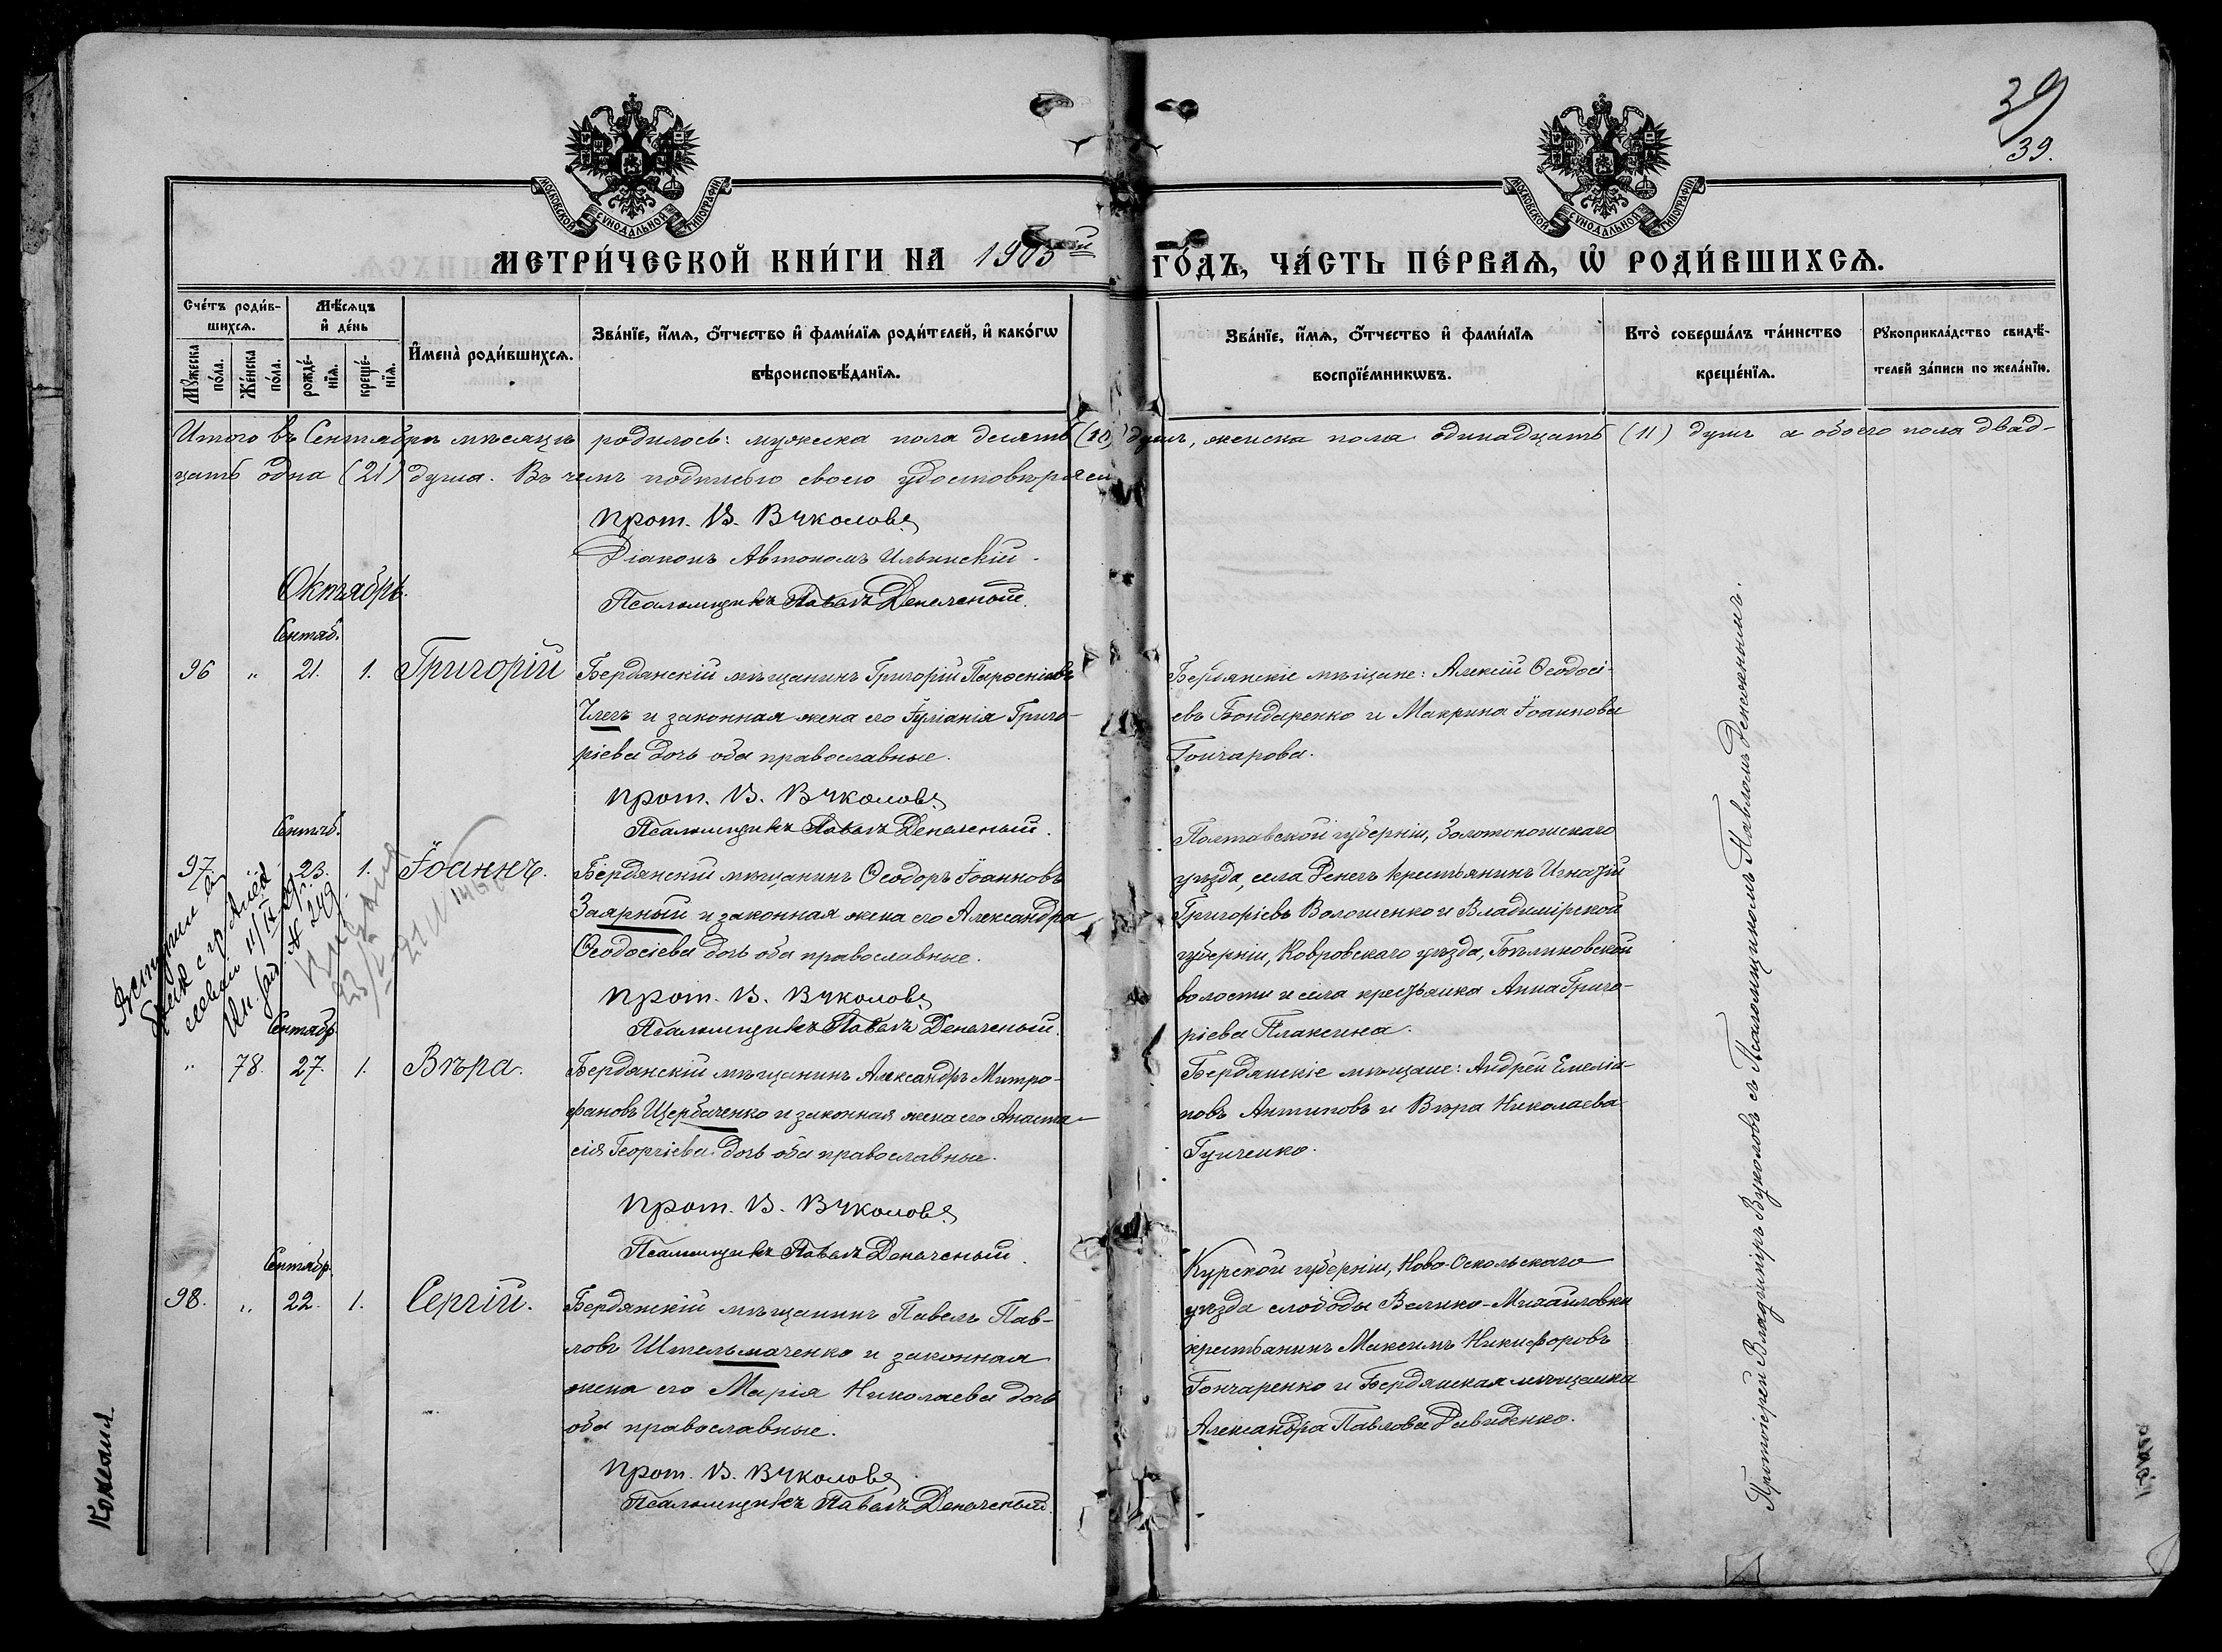 39
39.
МОСКОВСКОЙ СѴНОДАЛЬНОЙ ТИПОГРАФІИ
МОСКОВСКОЙ СѴНОДАЛЬНОЙ ТИПОГРАФІИ
МЕТРИ́ЧЕСКОЙ КНИ́ГИ НА 1905й ГО́ДЪ, ЧА́СТЬ ПЕ́РВАѦ, Ѡ҆ РОДИ́ВШИХСѦ.
Сче́тъ роди́в-
шихсѧ.
Мꙋ́жеска по́ла.
Же́нска по́ла.
Мѣ́сѧцъ
и҆ де́нь
рожде́-
нїѧ.
креще́-
нїѧ.
И҆мена̀ роди́вшихсѧ.
Зва́нїе, и҆́мѧ, ѻ҆́тчество и҆ фами́лїѧ роди́телей, и҆ како́гѡ
вѣроисповѣ́данїѧ.
Зва́нїе, и҆́мѧ, ѻ҆́тчество и҆ фами́лїѧ
воспрїе́мникѡвъ.
Кто̀ соверша́лъ та́инство
креще́нїѧ.
Рꙋкоприкла́дство свидѣ́-
телей за́писи по жела́нїю.
Итого въ Сентябрѣ мѣсяцѣ родилось: мужеска пола десять (10) душъ, женска пола одинадцать (11) душъ а обоего пола двад-
цать одна (21) душа. Въ чемъ подписью своею удостовѣряем
Прот. В. Вуколовъ
Діаконъ Автономъ Ильинскій.
Псаломщикъ Павелъ Денеженый.
Октябрь.
Сентяб.
96 " 21. 1. Григорій
Бердянскій мѣщанинъ Григорій Парфеніевъ
Члекъ и законная жена его Іуліанія Григо-
ріева дочь оба православные.
Прот. В. Вуколовъ
Псаломщикъ Павелъ Денеженый.
Бердянскіе мѣщане: Алексій Ѳеодосі-
евъ Бондаренко и Макрина Іоаннова
Гончарова.
Сентяб.
97. " 23. 1. Іоаннъ.
Бердянскій мѣщанинъ Ѳеодоръ Іоанновъ
Заярный и законная жена его Александра
Ѳеодосіева дочь оба православные.
Прот. В. Вуколовъ
Псаломщикъ Павелъ Денеженый.
Полтавской губерніи, Золотоношскаго
уѣзда, села Денегъ крестьянинъ Игнатій
Григоріевъ Волошенко и Владимірской
губерніи, Ковровскаго уѣзда, Бѣльковской
волости и села крестьянка Анна Григо-
ріева Плаксина.
Сентябр.
" 78. 27. 1. Вѣра.
Бердянскій мѣщанинъ Александръ Митро-
фановъ Щербаченко и законная жена его Анаста-
сія Георгіева дочь оба православные.
Прот. В. Вуколовъ
Псаломщикъ Павелъ Денеженый.
Бердянскіе мѣщане: Андрей Емеліа-
новъ Антиповъ и Вѣра Николаева
Гунченко.
Сентябр.
98. " 22. 1. Сергій.
Бердянскій мѣщанинъ Павелъ Пав-
ловъ Штельмаченко и законная
жена его Марія Николаева дочь
оба православные.
Прот. В. Вуколовъ
Псаломщикъ Павелъ Денеженый.
Курской губерніи, Ново-Оскольскаго
уѣзда слободы Велико-Михайловки
крестьянинъ Максимъ Никифоровъ
Гончаренко и Бердянская мѣщанка
Александра Павлова Давиденко.
Протоіерей Владиміръ Вуколовъ съ Псаломщикомъ Павломъ Денеженымъ.